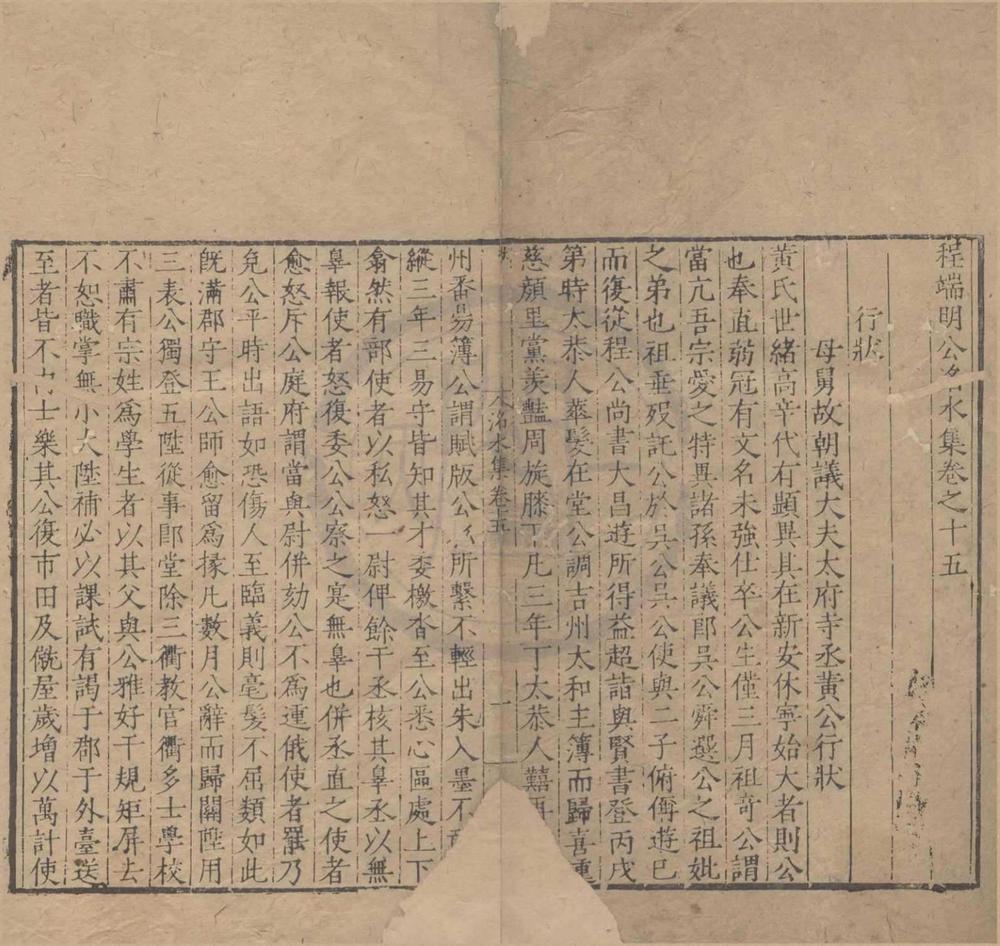 程端明公洺水集卷之十五
行狀
母舅故朝議大夫太府寺丞黃公行狀
黃氏世緒高辛代有顯異其在新安休寧始大者則公
也奉直蒟冠有文名未強仕卒公生僅三月祖奇公謂
當亢吾宗愛之特異諸孫奉議郎吳公舜選公之祖妣
之弟也祖垂歿託公於吳公吳公使與二子俯俯遊已
而復從程公尚書大昌遊所得益超詣與賢書登丙戌
第時太恭人華髮在堂公調吉州太和主簿而歸喜動
慈顏里黨羨豔周旋膝下凡三年丁太恭人囏再
洺水集卷十五 一
州番昜簿公謂賦版公 所繫不輕出朱入墨不
縱三年三易守皆知其才委檄沓至公悉心區處上下
翕然有部使者以私怒一尉俾餘干丞核其辠丞以無
辠報使者怒復委公公察之寔無辠也併丞直之使者
愈怒斥公庭府謂當與尉併劾公不為運俄使者罷乃
免公平時出語如恐傷人至臨義則毫髮不屈類如此
旣滿郡守王公師愈留爲掾凡數月公辭而歸關陞用
三表公獨登五陞從事郎堂除三衢教官衢多士學校
不肅有宗姓爲學生者以其父與公雅好干規矩屏去
不恕職掌無小大陞補必以課試有謁于郡于外臺送
至者皆不 士樂其公復市田及僦屋歲增以萬計使